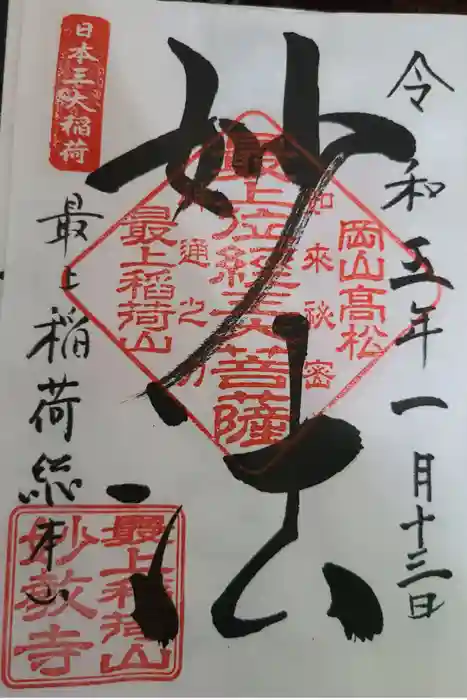 令和五年一月十三日
妙法
岡山高松
如来秘密
最上位経王大菩薩
神通之力
最上稲荷山
日本三大稲荷
最上稲荷総本山
最上稲荷山
妙教寺